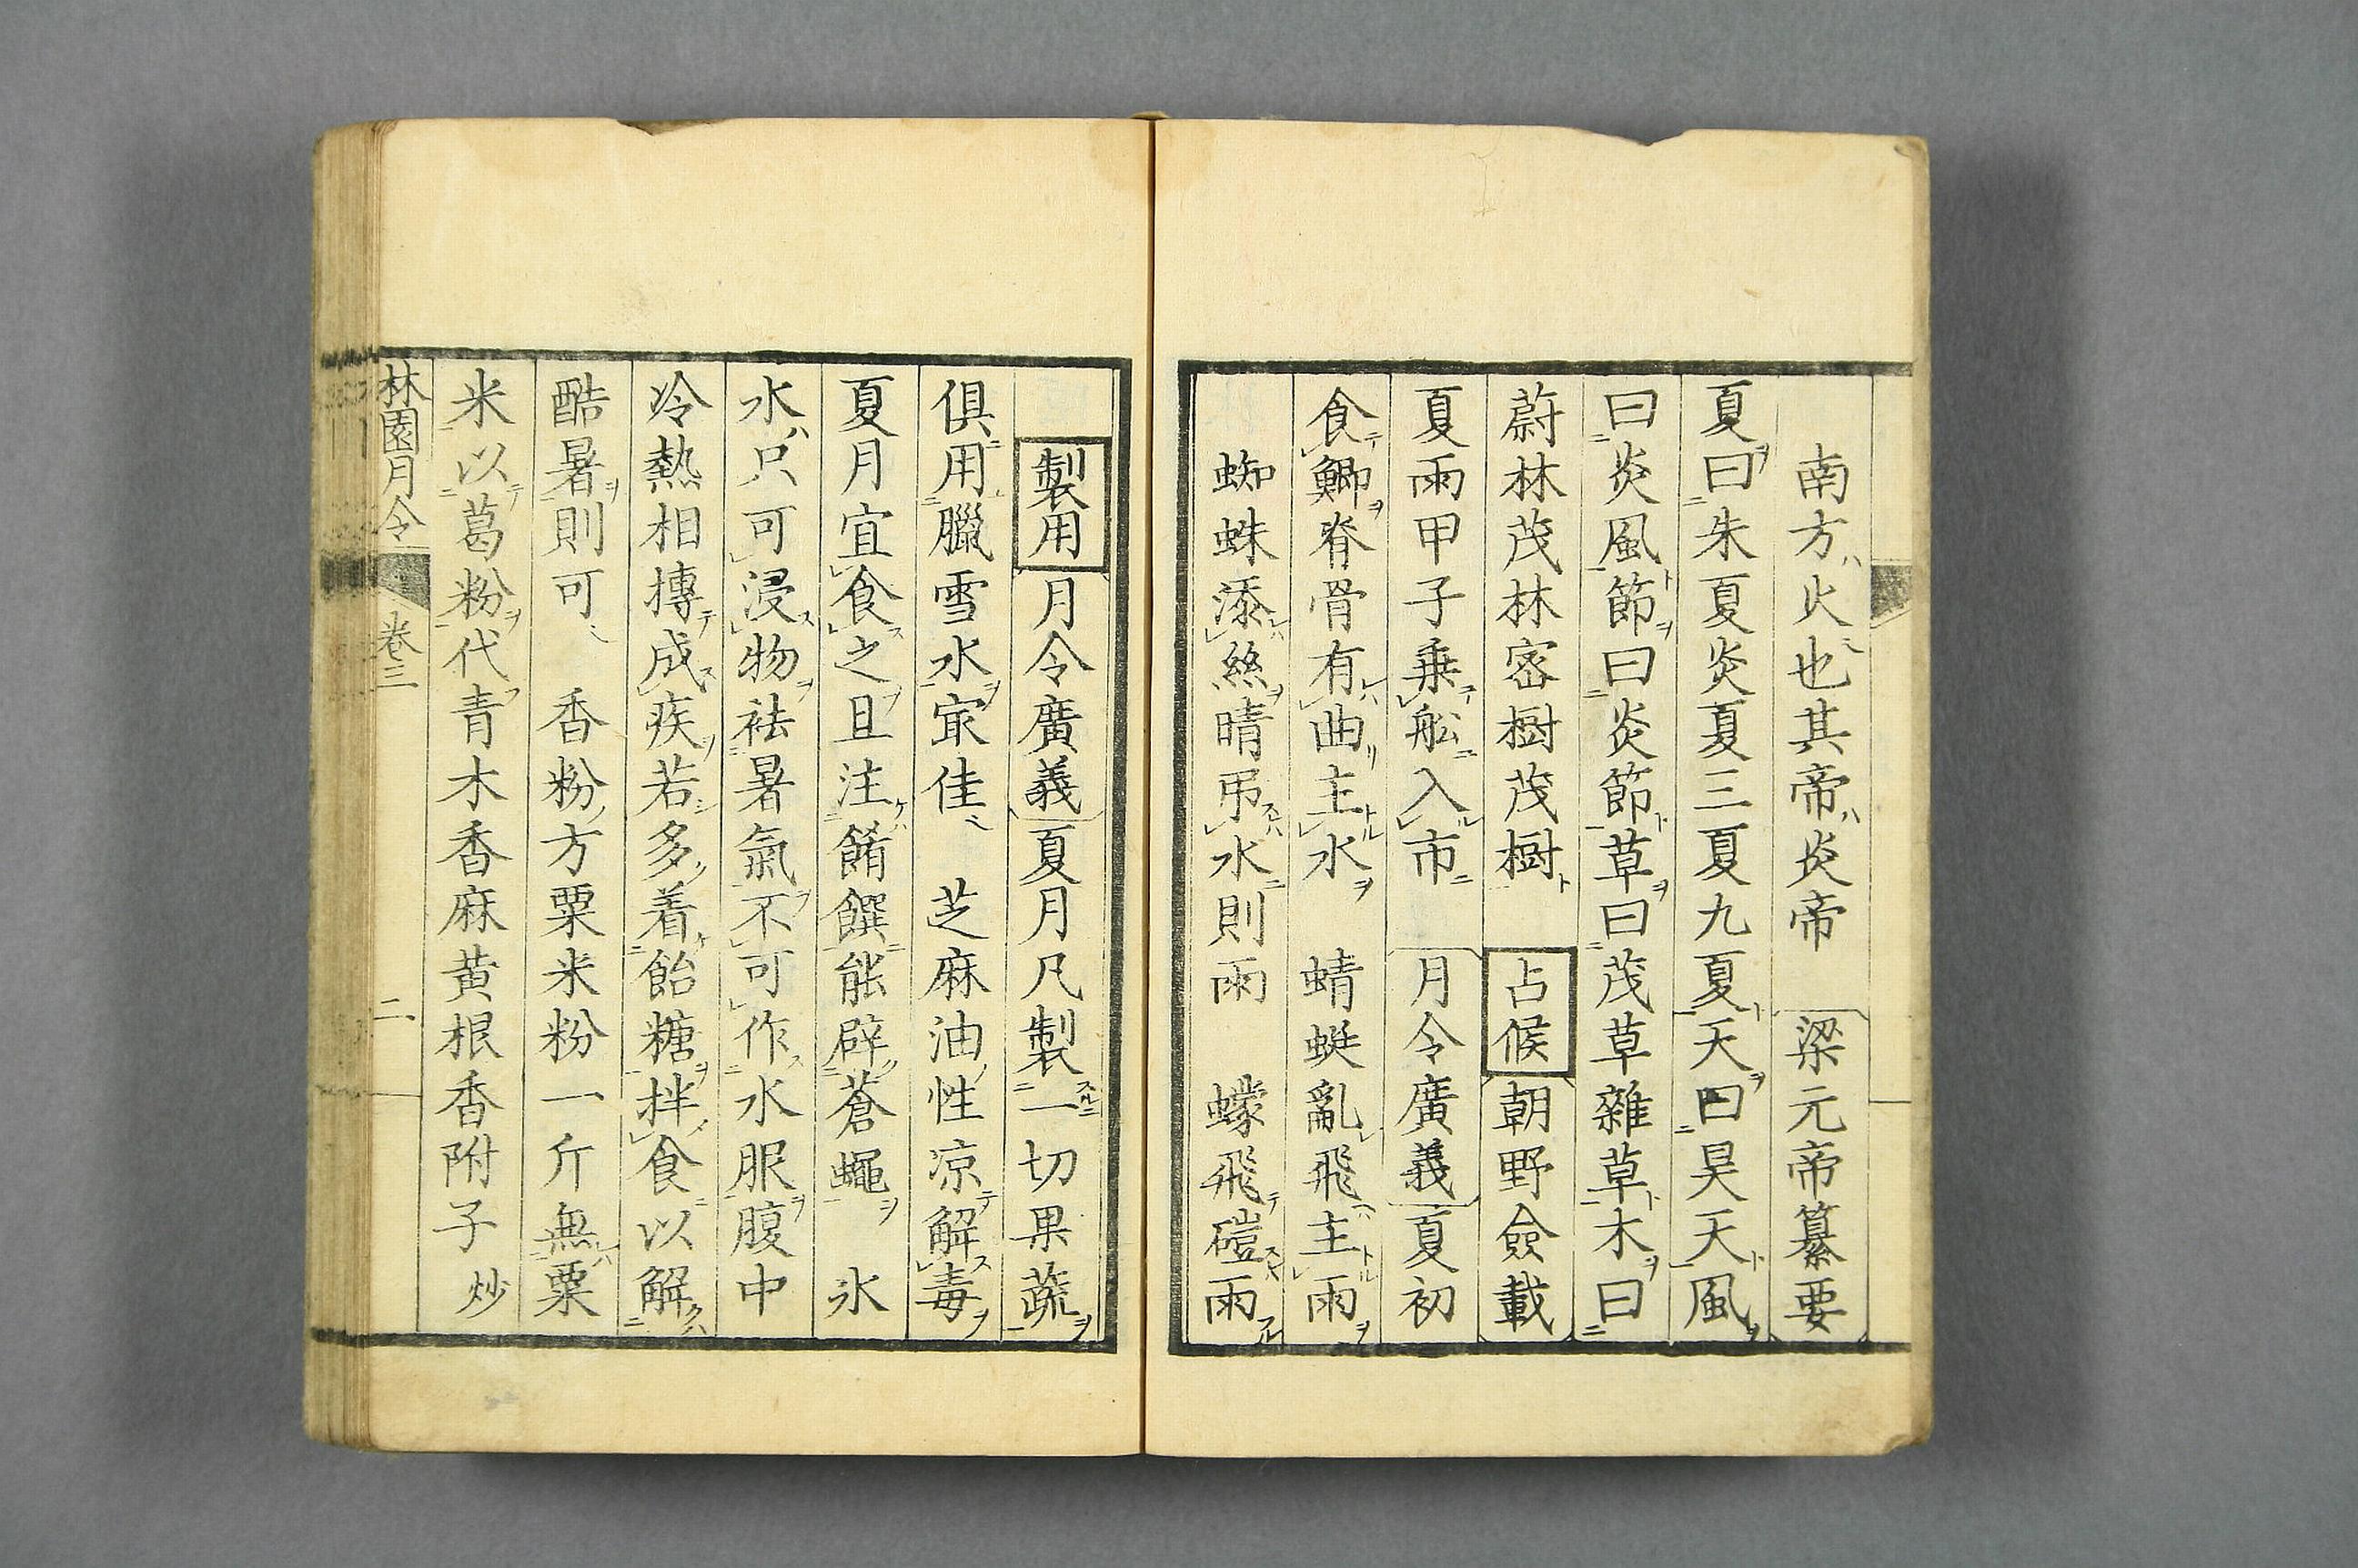 南方火也其帝炎帝 梁元帝纂要
夏曰朱夏炎夏三夏九夏天曰昊天風
曰炎風節曰炎節草曰茂草雜草木曰
蔚林茂林宻樹茂樹 占候 朝野僉載
夏雨甲子乗舩入市 月令廣義 夏初
食鯽脊骨有曲主水 蜻蜓亂飛主雨
蜘蛛添絲晴吊水則雨 蠓飛磑雨
製用 月令廣義 夏月凡製一切果蔬
俱用臘雪水㝡佳 芝麻油性凉解毒
夏月宜食之且注餚饌能辟蒼蠅 氷
水只可浸物祛暑氣不可作水服腹中
冷熱相摶成疾若多着飴糖拌食以解
酷暑則可 香粉方粟米粉一斤無粟
米以葛粉代青木香麻黄根香附子炒
林園月令 卷三 二